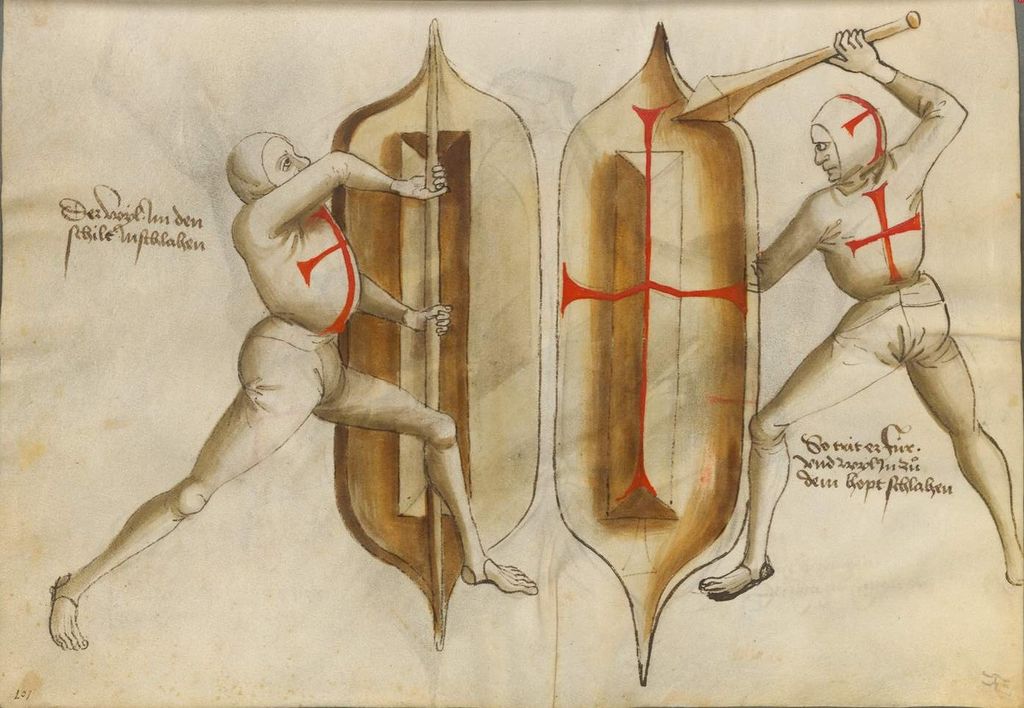 Der wyl Im den
schilt Inschlahen
So trit er für .
vnd wyl In zů
dem hopt schlahen
101